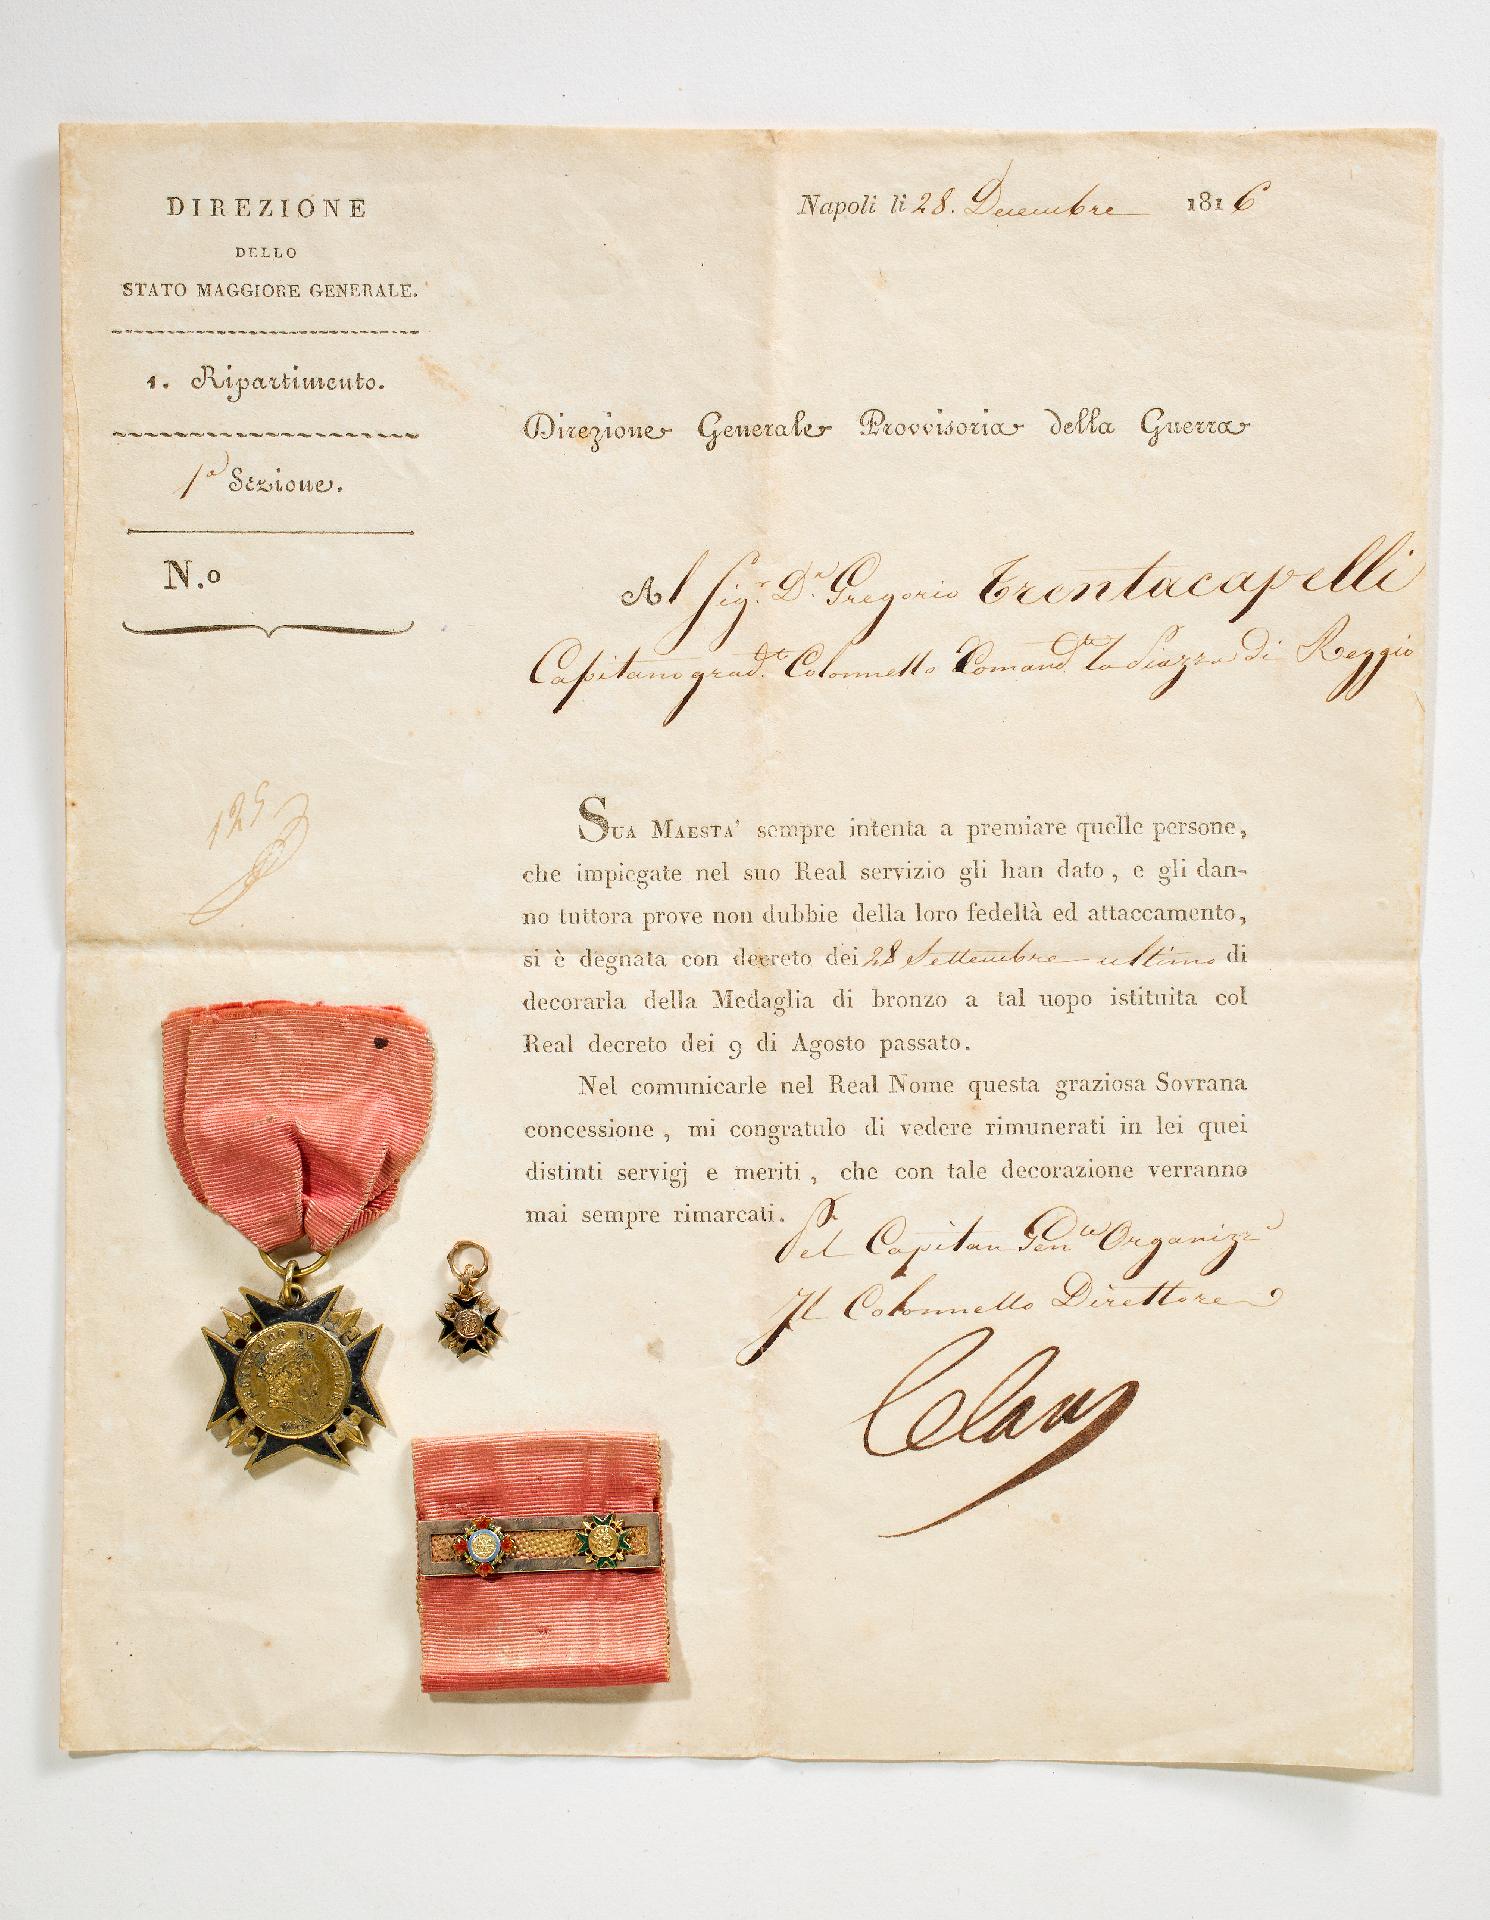 DIREZIONE
DELLO
STATO MAGGIORE GENERALE.
1. Ripartimento.
1a Sezione.
N.o
125
Napoli li 28. Decembre 1816
Direzione Generale Provvisoria della Guerra
Al Sigr. Dn. Gregorio Trentacapelli
Capitano gradto. Colonnello Comandte la Piazza di Reggio
SUA MAESTA' sempre intenta a premiare quelle persone,
che impiegate nel suo Real servizio gli han dato, e gli dan-
no tuttora prove non dubbie della loro fedeltà ed attaccamento,
si è degnata con decreto dei 28 Settembre ultimo di
decorarla della Medaglia di bronzo a tal uopo istituita col
Real decreto dei 9 di Agosto passato.
Nel comunicarle nel Real Nome questa graziosa Sovrana
concessione, mi congratulo di vedere rimunerati in lei quei
distinti servigj e meriti, che con tale decorazione verranno
mai sempre rimarcati.
Pel Capitan Gen
Il Colonnello Direttore